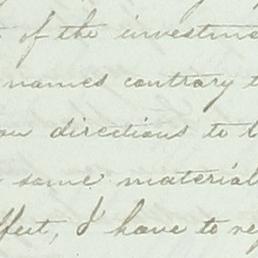 of the investme
names contrary t
directions to
some material
ffect, I have to re